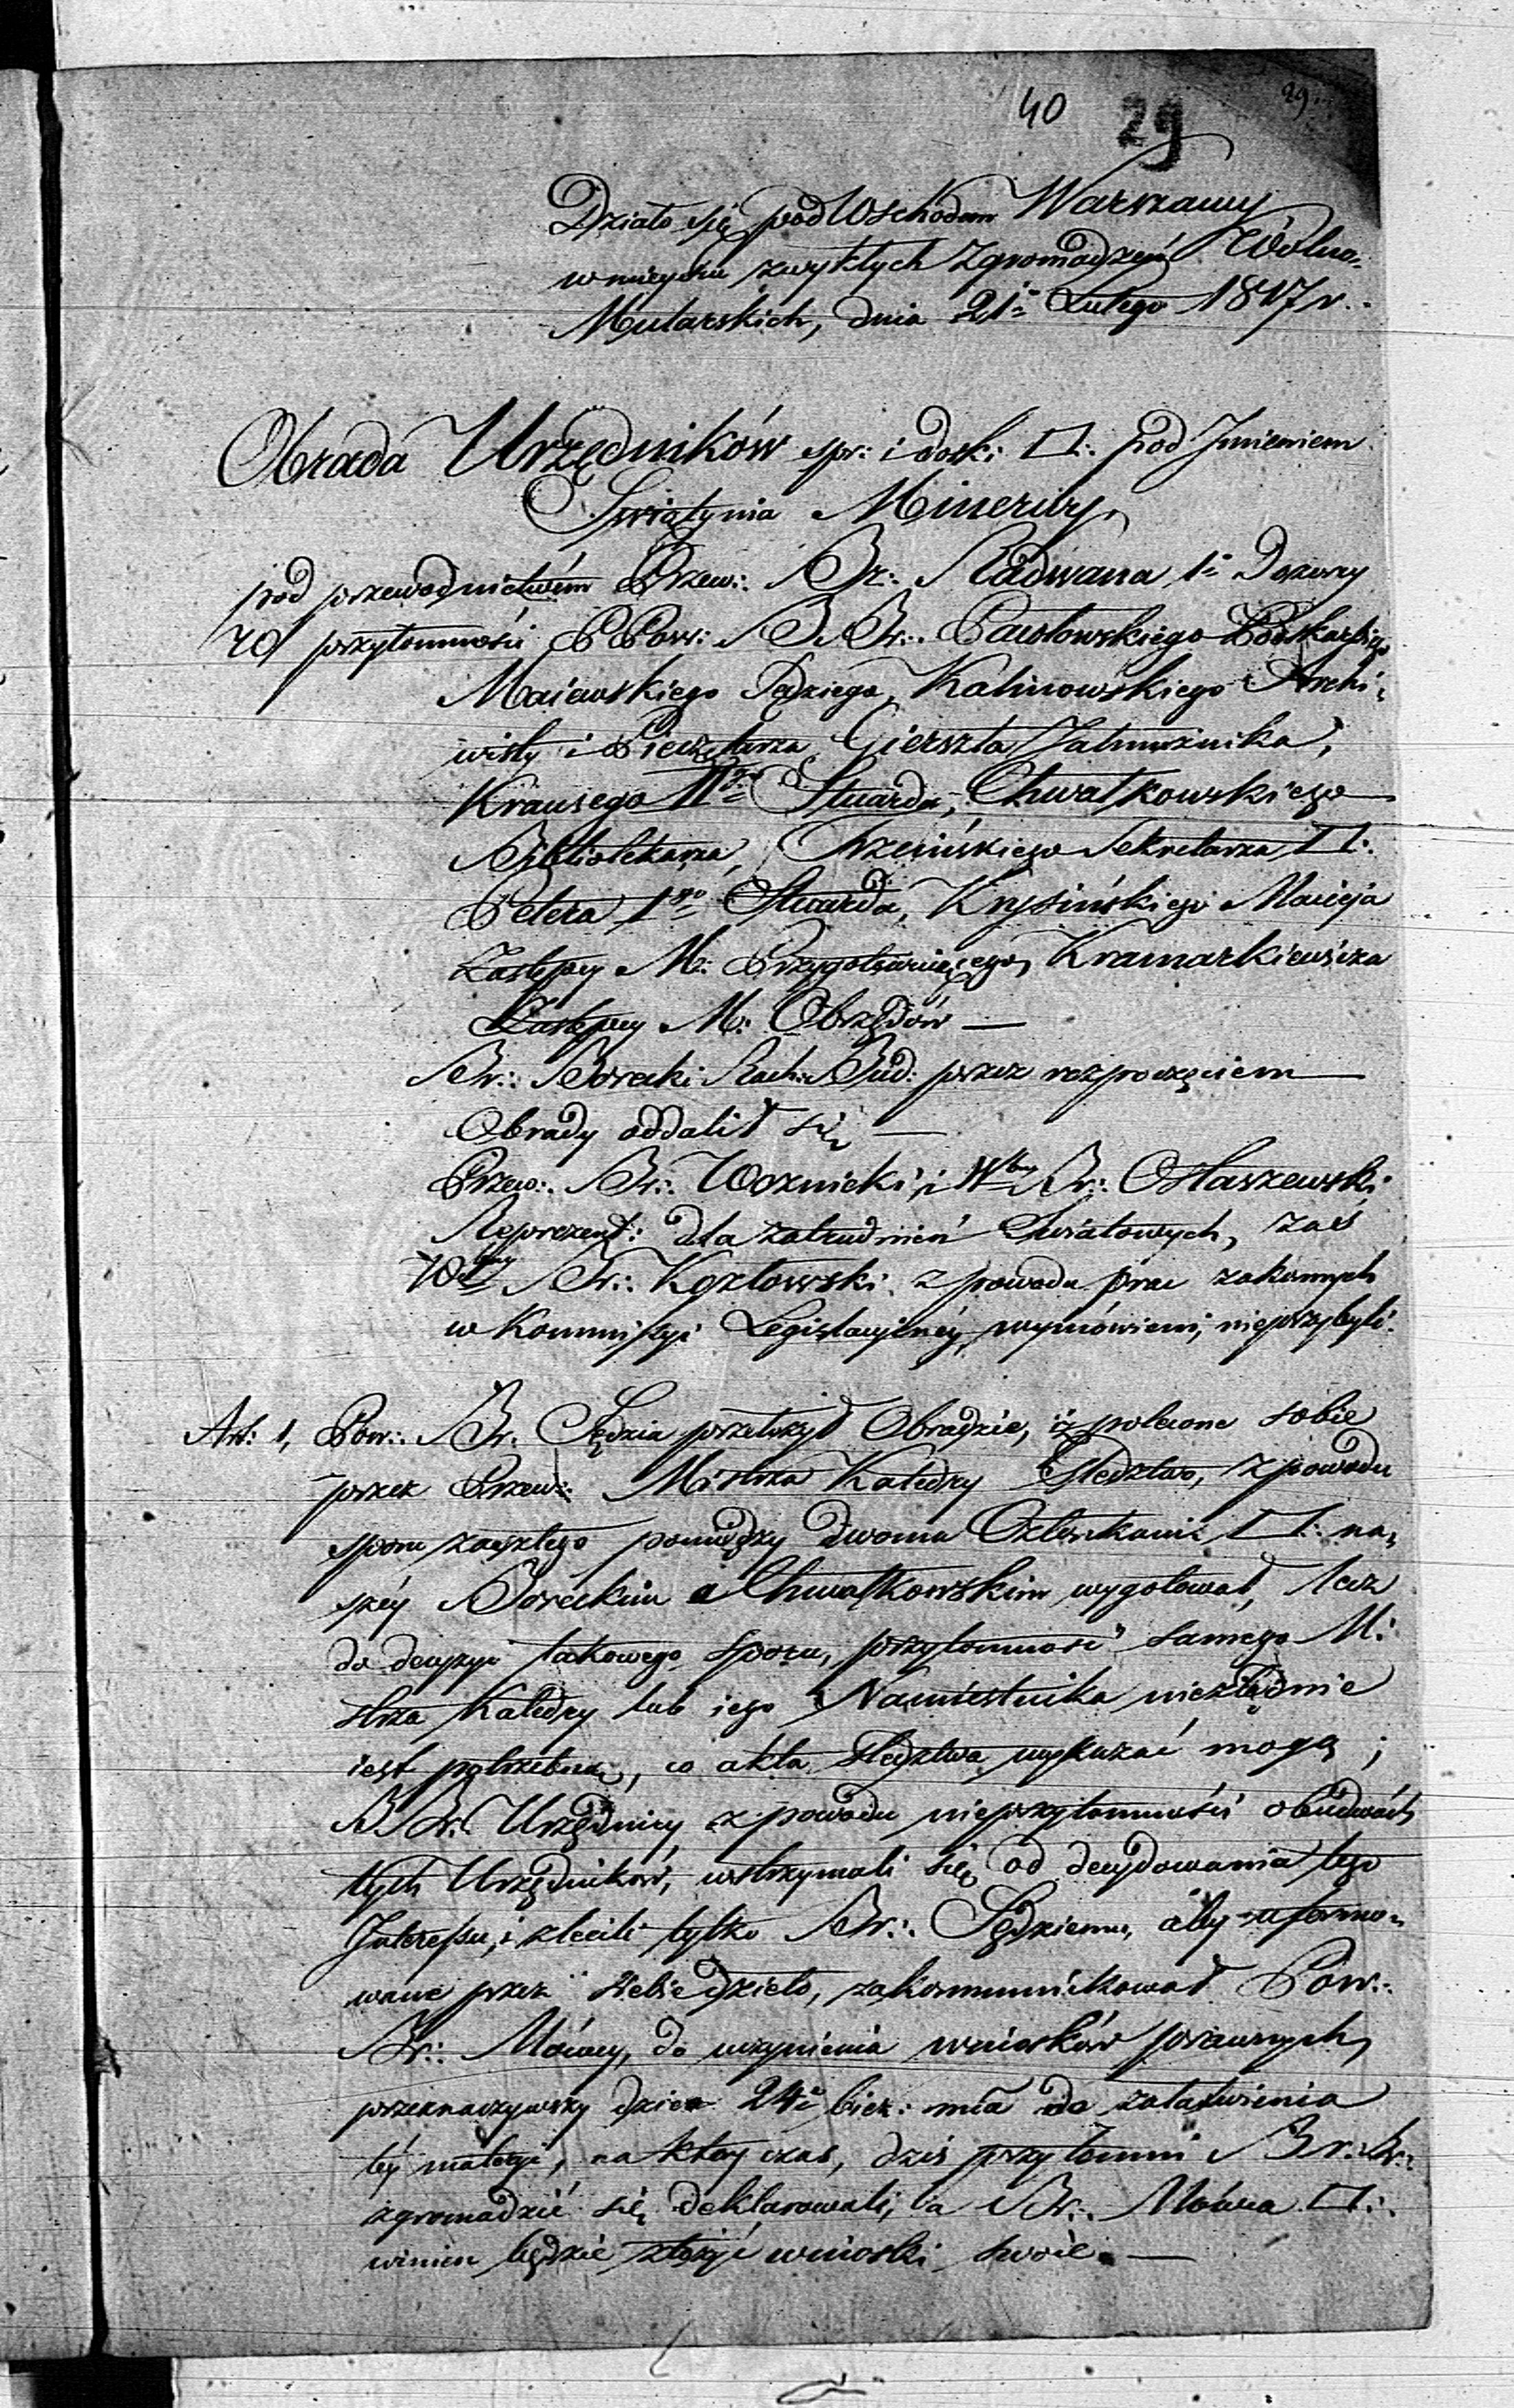 40 29 29.
Działo się pod Wschodem Warszawy
w mieyscu zwykłych Zgromadzeń Wolno-
Mularskich, dnia 21º Lutego 1817 r.
Obrada Urzędników spr: i dosk: □: pod Jmieniem
Swiątynia Minerwy,
pod przewodnictwem Przew: Br: Radwana 1º Dozorcy
w przytomności PPow: BBr: Pawłowskiego Podskarbiego
Maiewskiego Sędziego, Kalinowskiego Archi-
wisty i Pieczętarza, Gierszta Jałmużnika,
Krausego IIgo Stuarda, Chwatkowskiego
Bibliotekarza, Sekretarza □:
Petera 1go Stuarda, Krysińskiego Macieja
Zastępcy M: Przygotowuiącego, Kramarkiewicza
Zastępcy M: Obrzędów —
Br: Borecki Rach: Bud: przez rozpoczęciem —
Obrady oddalił się —
Przew: Br: Woznicki i Wbny Br: Ostaszewski
Reprezent: dla zatrudnień Swiatowych, zaś
Wbny Br: Kozłowski z powodu prac zakonnych
w Kommissyi Legislacyiney wymówieni, nieprzybyli.
Art: 1, Pow: Br. Sędzia przełożył Obradzie, iż polecone sobie
przez Przew: Mistrza Katedry Sledztwo, z powodu
sporu zaszłego pomiędzy dwoma Członkami □: na-
széy Boreckim a Chwatkowskim wygotował, lecz
do decyzyi takowego sporu, przytomność samego Mi-
strza Katedry lub iego Namiestnika niezbędnie
iest potrzebną, co akta Sledztwa wykazać mogą;
BBr. Urzędnicy z powodu nieprzytomności obudwóch
tych Urzędników, wstrzymali się od decydowania tego
Interessu, i zlecili tylko Br: Sędziemu, aby uformo-
wane przez siebie dzieło, zakommunikował Pow:
Br: Mówcy, do uczynienia wniosków prawnych,
przeznaczywszy dzien 24º bież: mca do załatwienia
téy materyi, na który czas, dziś przytomni Br: Br:
zgromadzić się deklarowali, a Br: Mówca □:
winien będzie złożyć wnioski swoie. —